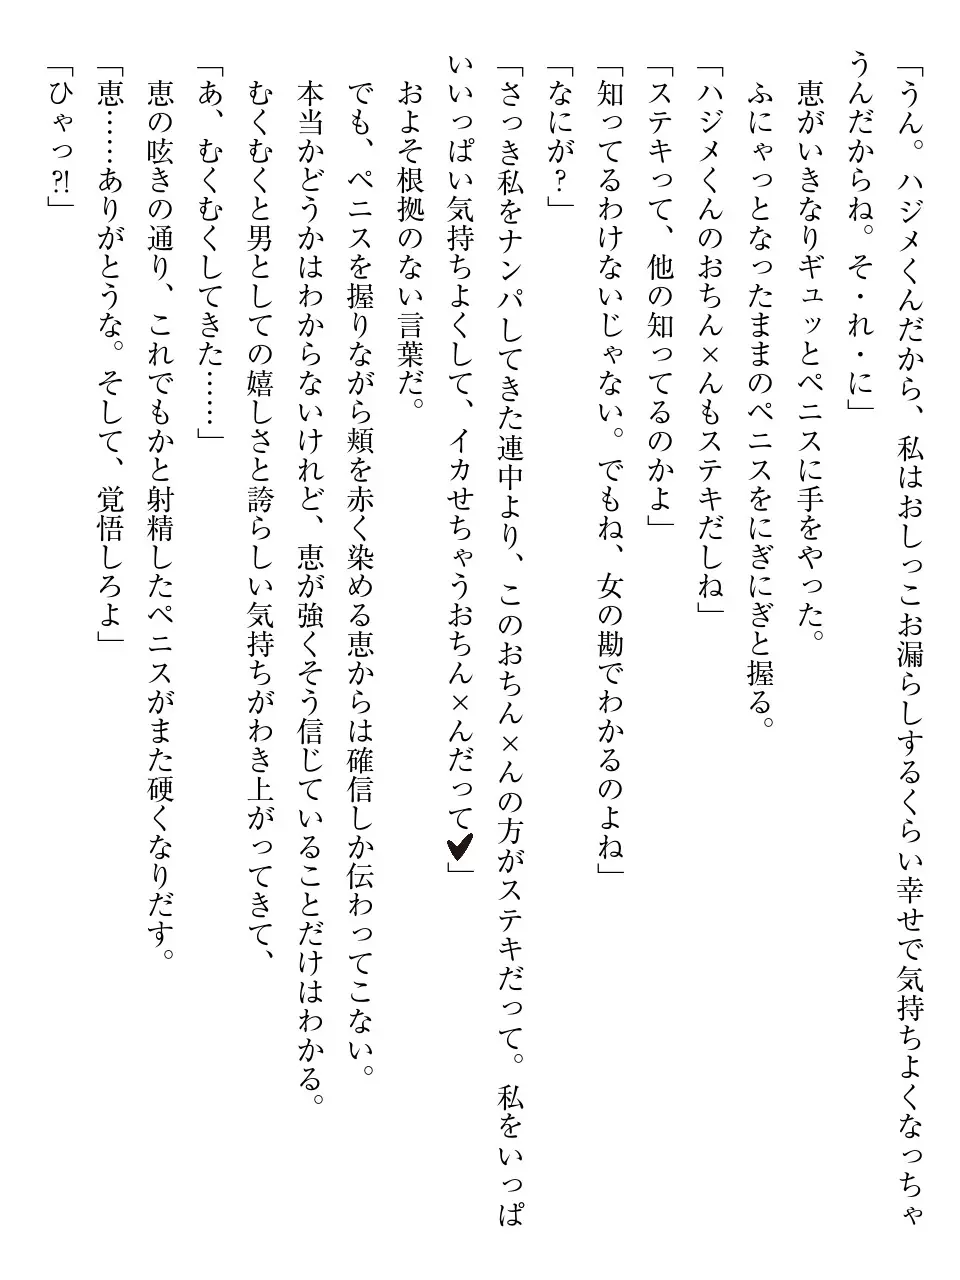 「うん。ハジメくんだから、私はおしっこお漏らしするくらい幸せで気持ちよくなっちゃ
うんだからね。そ・れ・に」
恵がいきなりギュッとペニスに手をやった。
ふにゃっとなったままのペニスをにぎにぎと握る。
「ハジメくんのおちん×んもステキだしね」
「ステキって、他の知ってるのかよ」
「知ってるわけないじゃない。でもね、女の勘でわかるのよね」
「なにが？」
「さっき私をナンパしてきた連中より、このおちん×んの方がステキだって。私をいっぱ
いいっぱい気持ちよくして、イカせちゃうおちん×んだって♥」
およそ根拠のない言葉だ。
でも、ペニスを握りながら頬を赤く染める恵からは確信しか伝わってこない。
本当かどうかはわからないけれど、恵が強くそう信じていることだけはわかる。
むくむくと男としての嬉しさと誇らしい気持ちがわき上がってきて、
「あ、むくむくしてきた……」
恵の呟きの通り、これでもかと射精したペニスがまた硬くなりだす。
「恵……ありがとうな。そして、覚悟しろよ」
「ひゃっ⁈」